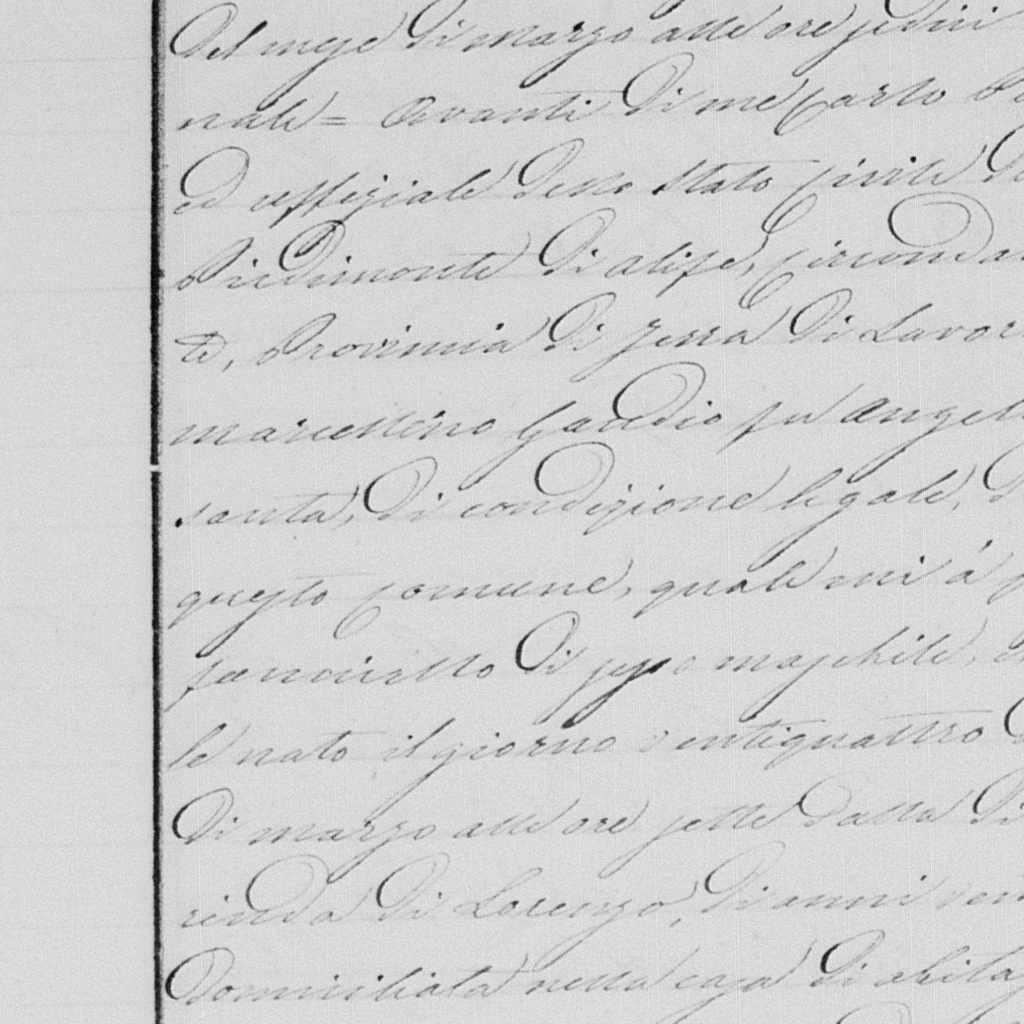 del mese di Marzo alle ore sedici
nale = Avanti di me Carlo
ed uffiziale dello Stato Civile
Piedimonte di Alife, Circonda
te, Provincia di Terra di Lavor
Marcellino Gaudio fu Angel
santa, di condizione legale,
questo Comune, quale mi à
fanciullo di sesso maschile,
le nato il giorno ventiquattro
di marzo alle ore sette dalla
rinda di Lorenzo, di anni
domiciliata nella casa di abita